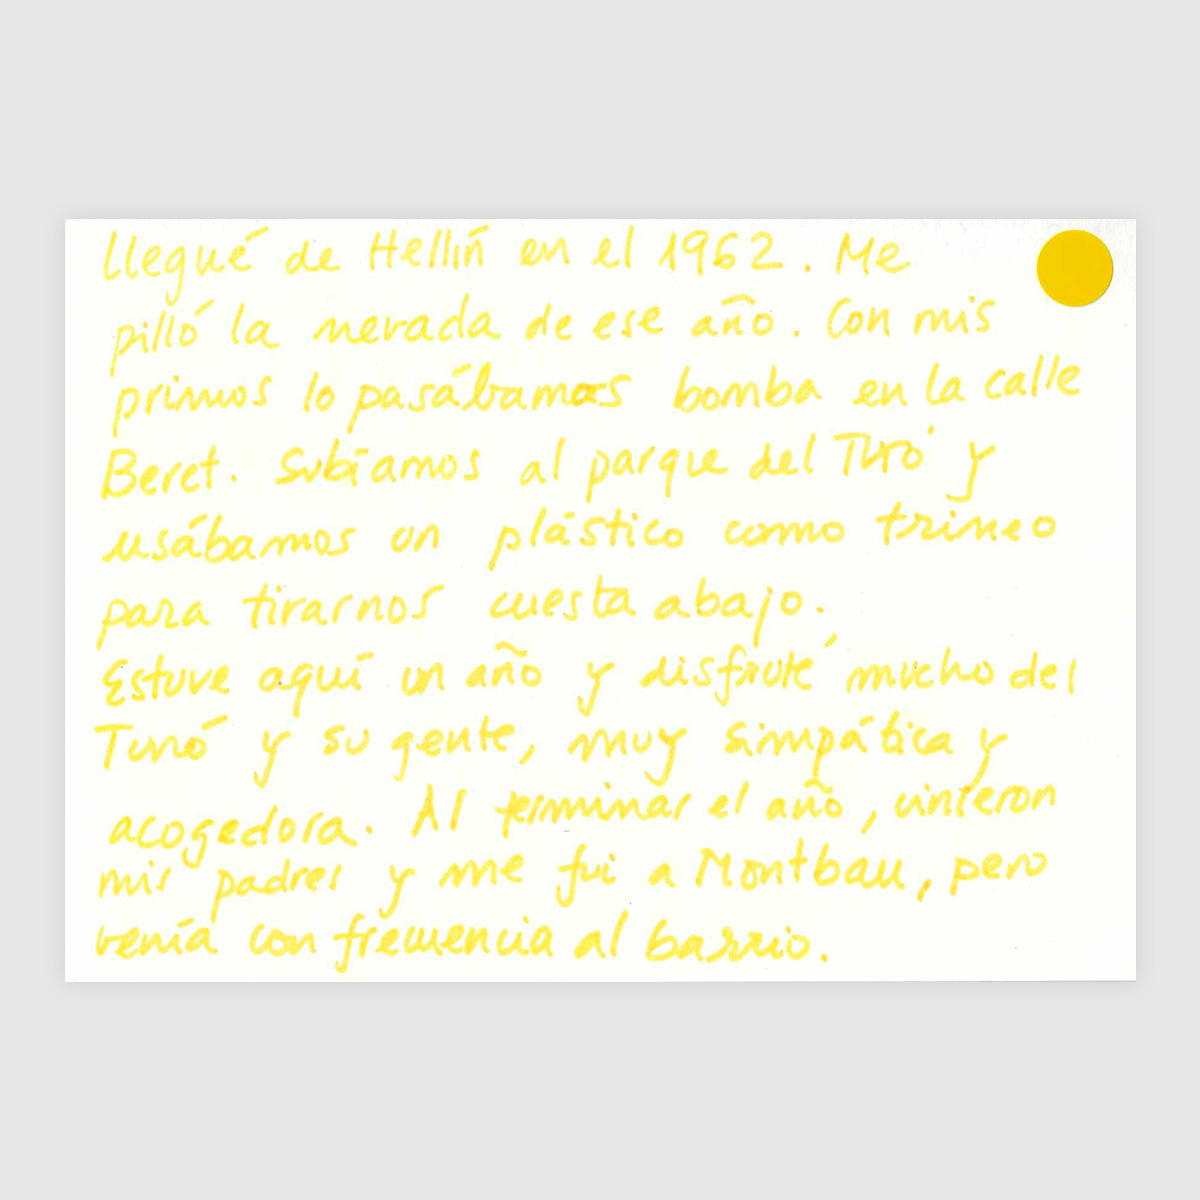 Llegué de Hellín en el 1962. Me
pilló la nevada de ese año. Con mis
primos lo pasábamos bomba en la calle
Beret. Subíamos al parque del Turó y
usábamos un plástico como trineo
para tirarnos cuesta abajo.
Estuve aquí un año y disfruté mucho del
Turó y su gente, muy simpática y
acogedora. Al terminar el año, vinieron
mis padres y me fui a Montbau, pero
venía con frecuencia al barrio.